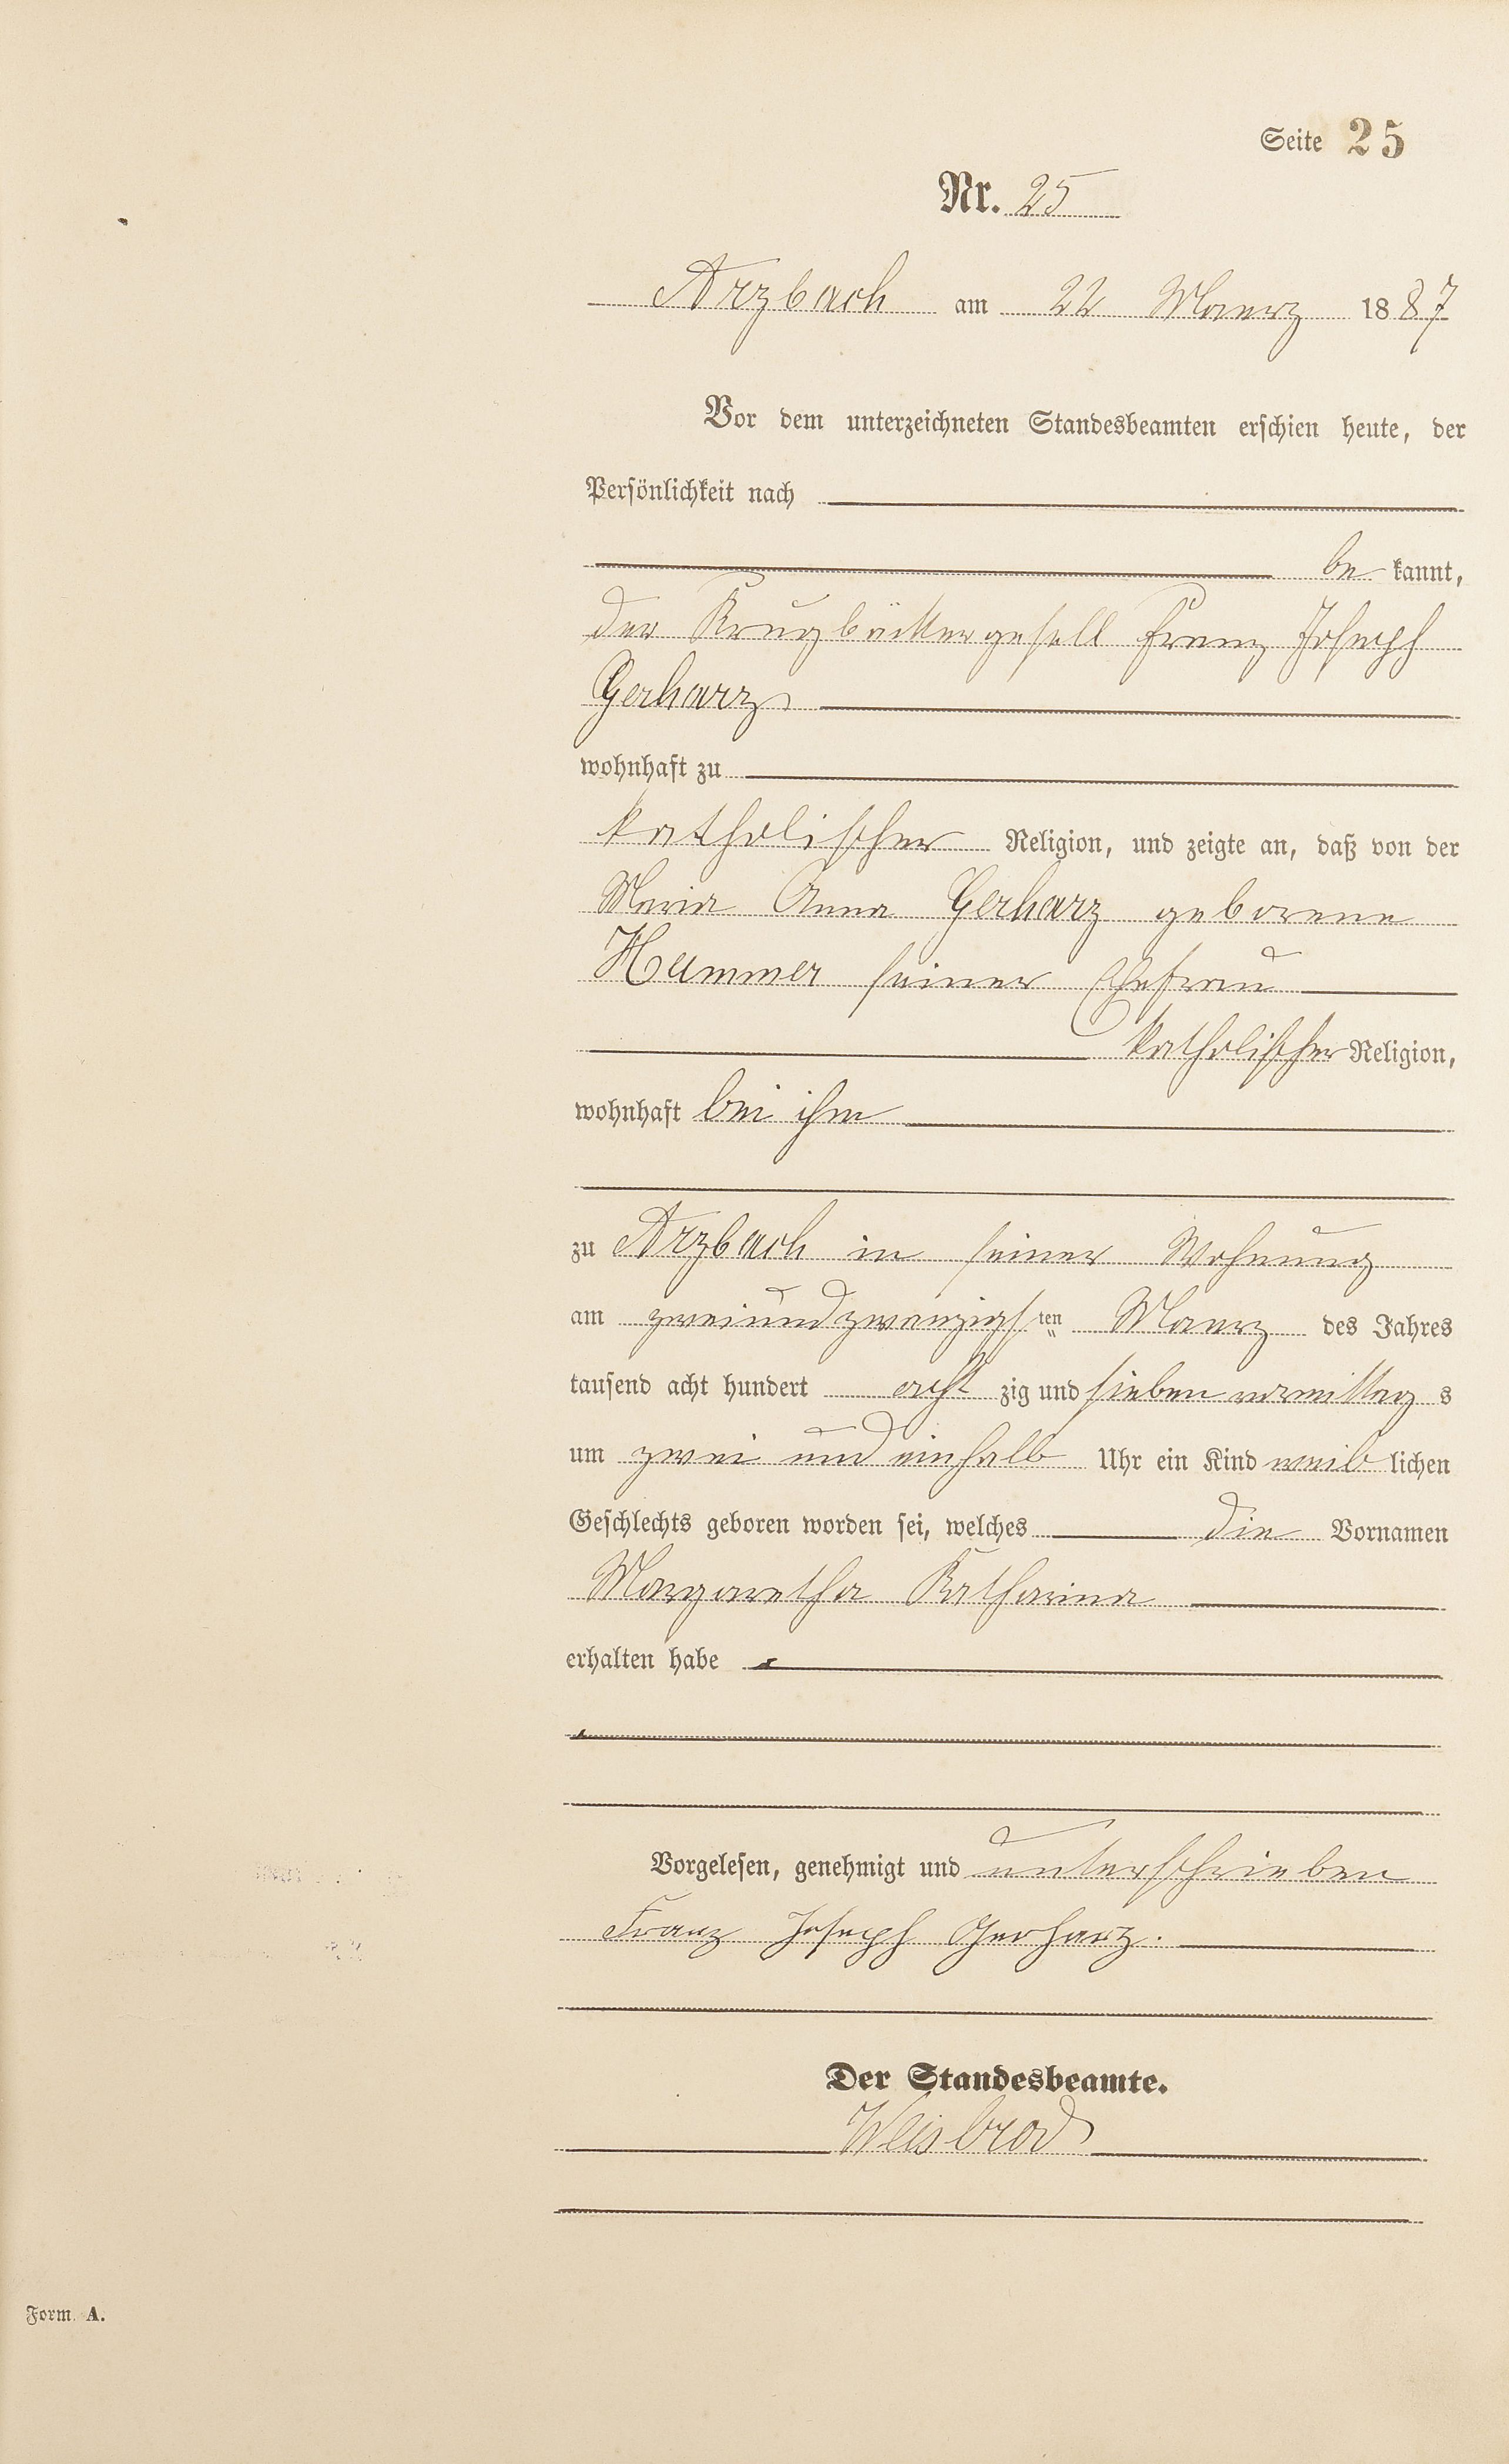 Seite 25
Nr. 25
Arzbach am 22 Maerz 1887
Vor dem unterzeichneten Standesbeamten erschien heute, der
Persönlichkeit nach
be kannt,
der Krugbäckergesell Franz Joseph
Gerharz
wohnhaft zu
katholischer Religion, und zeigte an, daß von der
Maria Anna Gerharz geborene
Hammer seiner Ehefrau
katholischer Religion,
wohnhaft bei ihm
zu Arzbach in seiner Wohnung
am zweiundzwanzigsten Maerz des Jahres
tausend acht hundert acht zig und sieben vormittag s
um zwei und einhalb Uhr ein Kind weib lichen
Geschlechts geboren worden sei, welches die Vornamen
Margaretha Katharina
erhalten habe
Vorgelesen, genehmigt und unterschrieben
Franz Joseph Gerharz.
Der Standesbeamte.
Weisbrod
Form. A.